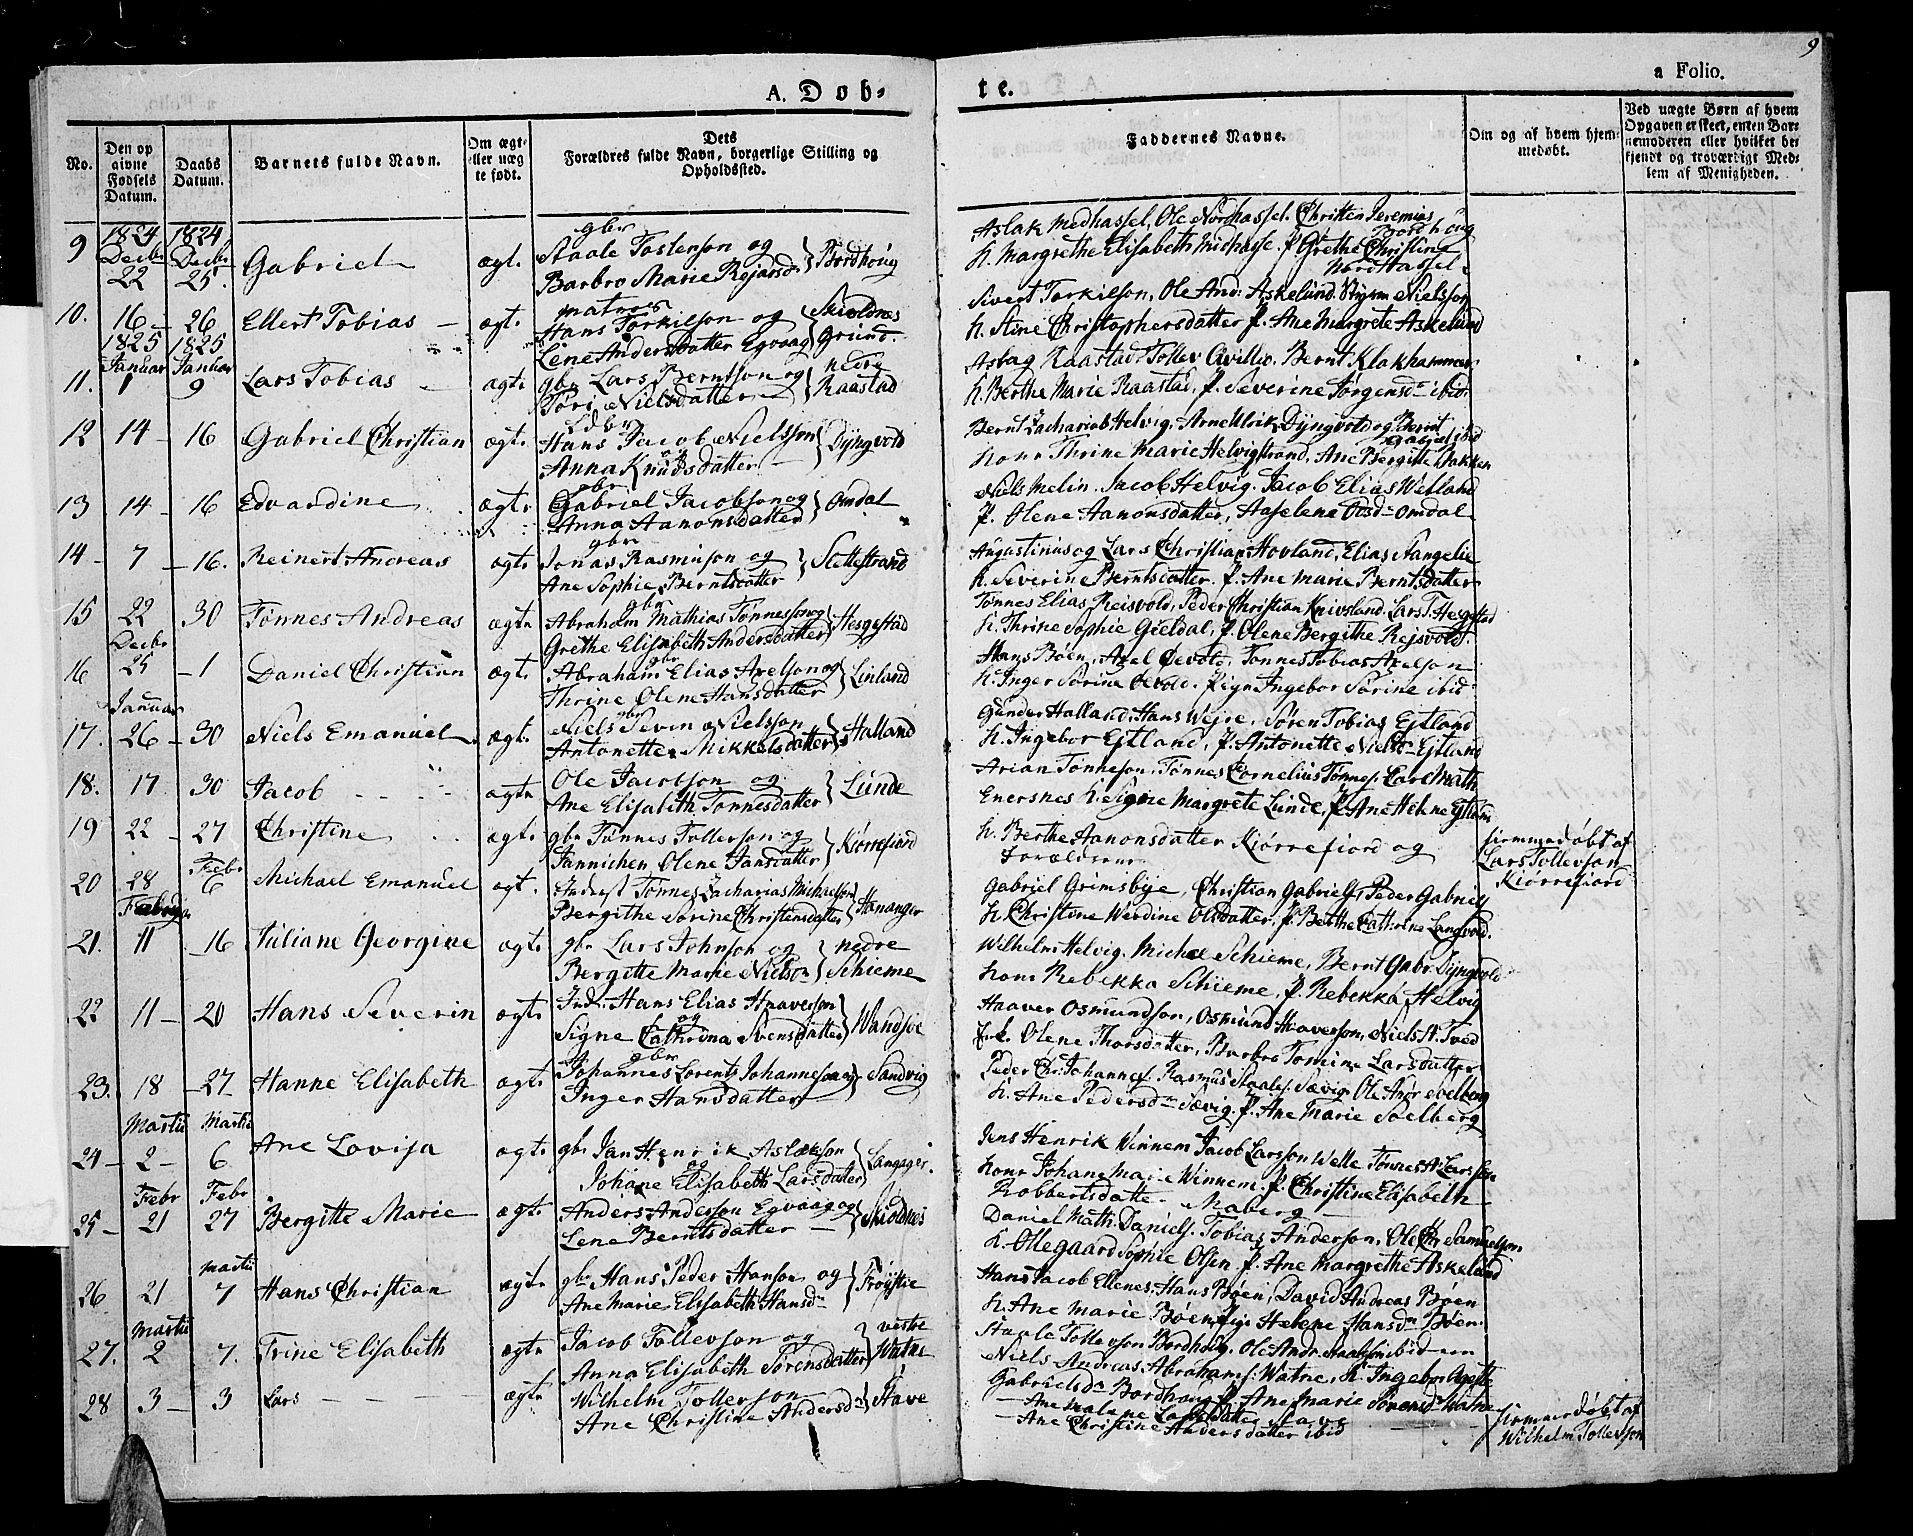 9
A. Døb-
te.
a Folio.
No.
Den op
givne
Fødsels
Datum.
Daabs
Datum.
Barnets fulde Navn.
Om ægt-
eller uæg
te født.
Dets
Forældres fulde Navn, borgerlige Stilling og
Opholdssted.
Faddernes Navne.
Om og af hvem hjem-
medøbt.
Ved uægte Børn af hvem
Opgaven er skeet, enten Bar-
nemoderen eller hvilket be-
kjendt og troværdigt Med-
lem af Menigheden.
1824 1824
9 Decbr 22 Decbr 25. Gabriel ægt. gbr Staale Tostenson og
Barbro Marie Rejarsdr Bordhoug
Aslak Medhassel, Ole Nordhassel. Christen Jeremias
Bordhoug
K. Margrethe Elisabeth Midhasse. P. Grethe Christine
Nordhassel.
10. 16 - 26 Ellert Tobias ægt. matros
Hans Torkilson og Skioldnes
Lene Andersdatter Egvaag Grund.
Sivert Torkilson, Ole And: Askelund. Nielsson
K. Stine Christophersdatter P. Ane Margrete Askelund
1825 1825
Januar Januar
11. 1 9 Lars Tobias ægt. gbr Lars Berntson og nedre
Tori Nielsdatter Raastad
Asbag Raastad Tollev Qvillio, Bernt Klakhammer
K. Berthe Marie Raastad, P. Severine Jørgensdr ibid.
12 14 - 16 Gabriel Christian ægt.
Hans Jacob Nielsson Dyngvold
og
Anna Knudsdatter
Bernt Zacharias Helvig, Arne Ulrik Dyngvold og Bernt
Gabriel ibid
Kone Thrine Marie Helvigstrand, Ane Bergitte Bakken
13 14 - 16 Edvardine ægt. gbr
Gabriel Jacobson og Omdal
Anna Aanonsdatter
Niels Melin. Jacob Helvig. Jacob Elias Wetland
P. Olene Aanonsdatter, Aaselena Olsdr Omdal
14 - 7 - 16. Reinert Andreas ægt. gbr
Jonas Rasmuson og Slettestrand
Ane Sophie Berntsdatter
Augustinus og Lars Christian Hovland, Elias Stangelie
K. Severine Berntsdatter. P. Ane Marie Berntsdatter
15 22 30 Tønnes Andreas ægte gbr
Abraham Mathias Tønnesson og Hesgestad
Grethe Elisabeth Andersdatter
Tønnes Elias Reisvold, Peder Christian Knivsland. Lars T. Hegestad
K. Thrine Sophie Gieldal, P. Olene Bergithe Rejsvold.
Decbr
16 25 - 1 Daniel Christian ægt. gbr
Abraham Elias Axelson og Linland
Thrine Olene Hansdatter
Hans Bøen, Axel Qevold, Tønnes Tobias Axelson
K. Inger Sørine Qevold. Pign Ingebor Sørine ibid
Januar
17. 26 - 30 Niels Emanuel ægt. gbr
Niels Seven Nielsson Halland
Antonette Mikkelsdatter
Gunder Halland, Hans Wejre, Søren Tobias Ejtland
K. Ingebor Ejtland, P. Antonette Nielsdr Ejtland
18. 17 30 Jacob ægte Ole Jacobson og
Ane Elisabeth Tønnesdatter Lunde
Arian Tønneson, Tønnes Cornelius Tønnes. Carl Math
Enersnes K. Signe Margrete Lunde, P. Ane Helene Ejtland
19 22 - 27 Christine ægt. gbr Tønnes Tollevson og
Tannichen Olene Jansdatter Kiørrefiord
K. Berthe Aanonsdatter Kiørrefiord og
Forældrene
hjemmedøbt af
Lars Tollevson
Kiørrefiord
20 28 Febr 6 Michael Emanuel ægt. Inderst Tønnes Zacharias Michaelson
Bergithe Sørine Christensdatter Hananger
Gabriel Grimsbye, Christian Gabriels, Peder Gabriels
K. Christine Werdine Olsdatter, P. Berthe Cathrine Langvold.
Februar
21. 11 - 16 Juliane Georgine ægt. gbr Lars Johnson og nedre
Bergitte Marie Nielsdr Schieme
Wilhelm Helvig. Michel Schieme, Bernt Gabr. Dyngvold
Kone Rebekka Schieme, P. Rebekka Helvig
22 11 - 20 Hans Severin ægt. Ind: Hans Elias Haaverson
og
Signe Cathrina Svensdatter Wandsøe
Haaver Osmundson, Osmund Haaverson, Niels A. Tved
Olene Thorsdatter, Barbro Tomine Larsdatter
23. 18 - 27 Hanne Elisabeth ægt. gbr
Johannes Lorents Johanneson og Sandvig
Inger Hansdatter
Peder Chr. Johannes. Rasmus Staales. Sævig Ole Andr Soelberg
K. Ane Pedersdr Sævig. P. Ane Marie Soelberg
Martii Martii
24 - 2 - 6 Ane Lovisa ægt. gbr Jan Henrik Aslakson
og
Johane Elisabeth Larsdatter Langager.
Jens Henrik Winnem Jacob Larsson Welle Tønnes A. Larsson
Kone Johane Marie Winnem. P. Christine Elisabeth
Robbertsdatter Maberg
Febr Febr
25 - 21 27 Bergitte Marie ægt. Anders Anderson Egvaag og
Lene Berntsdatter Skioldnes
Daniel Math. Daniels. Tobias Anderson. Ole Chr Samuelson
K. Ollegaard Sophie Olsen P. Ane Margrethe Askelund
Martii
26 21 7 Hans Christian ægt. gbr Hans Peder Hanson og
Ane Marie Elisabeth Hansdr Frøjstie
Hans Jacob Ellenes, Hans Bøen, David Andreas Bøen
K. Ane Marie Bøen, Pig: Helene Hansdr Bøen
Martii
27. 2 7. Trine Elisabeth ægt. Jacob Tollevson og vestre
Anna Elisabeth Sørensdatter Watne
Staale Tollevson Bordhoug. Ole Andr. Staalson ibidem
Niels Andreas Abrahams. Watne, K. Ingebor Agethe
Gabrielsdr Bordhoug P. Ane Marie Sørensdr Watne
28 3 - 3 Lars ægt. Wilhelm Tollevson
Ane Christine Andersdr Stave
Ane Malene Larsdatter Stave
Ane Christine Andersdatter ibid
hjemmedøbt af
Wilhelm Tollevson